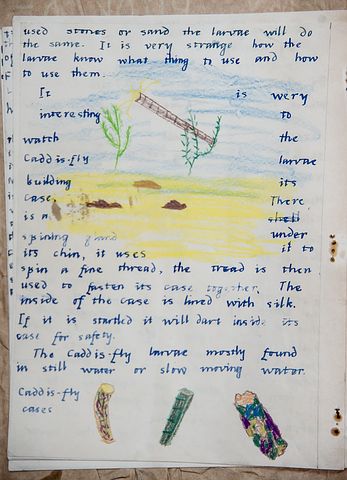 used stones or sand the larvae will do
the same. It is very strange how the
larvae know what thing to use and how
to use them.
It is wery
interesting to
watch the
Caddis-fly larvae
building its
case, There
is a small
spining gland under
its chin, it uses it to
spin a fine thread, the tread is then
used to fasten its case together. The
inside of the case is lined with silk.
If it is startled it will dart inside its
case for safety.
The Caddis-fly larvae mostly found
in still water or slow moving water.
Caddis-fly
cases